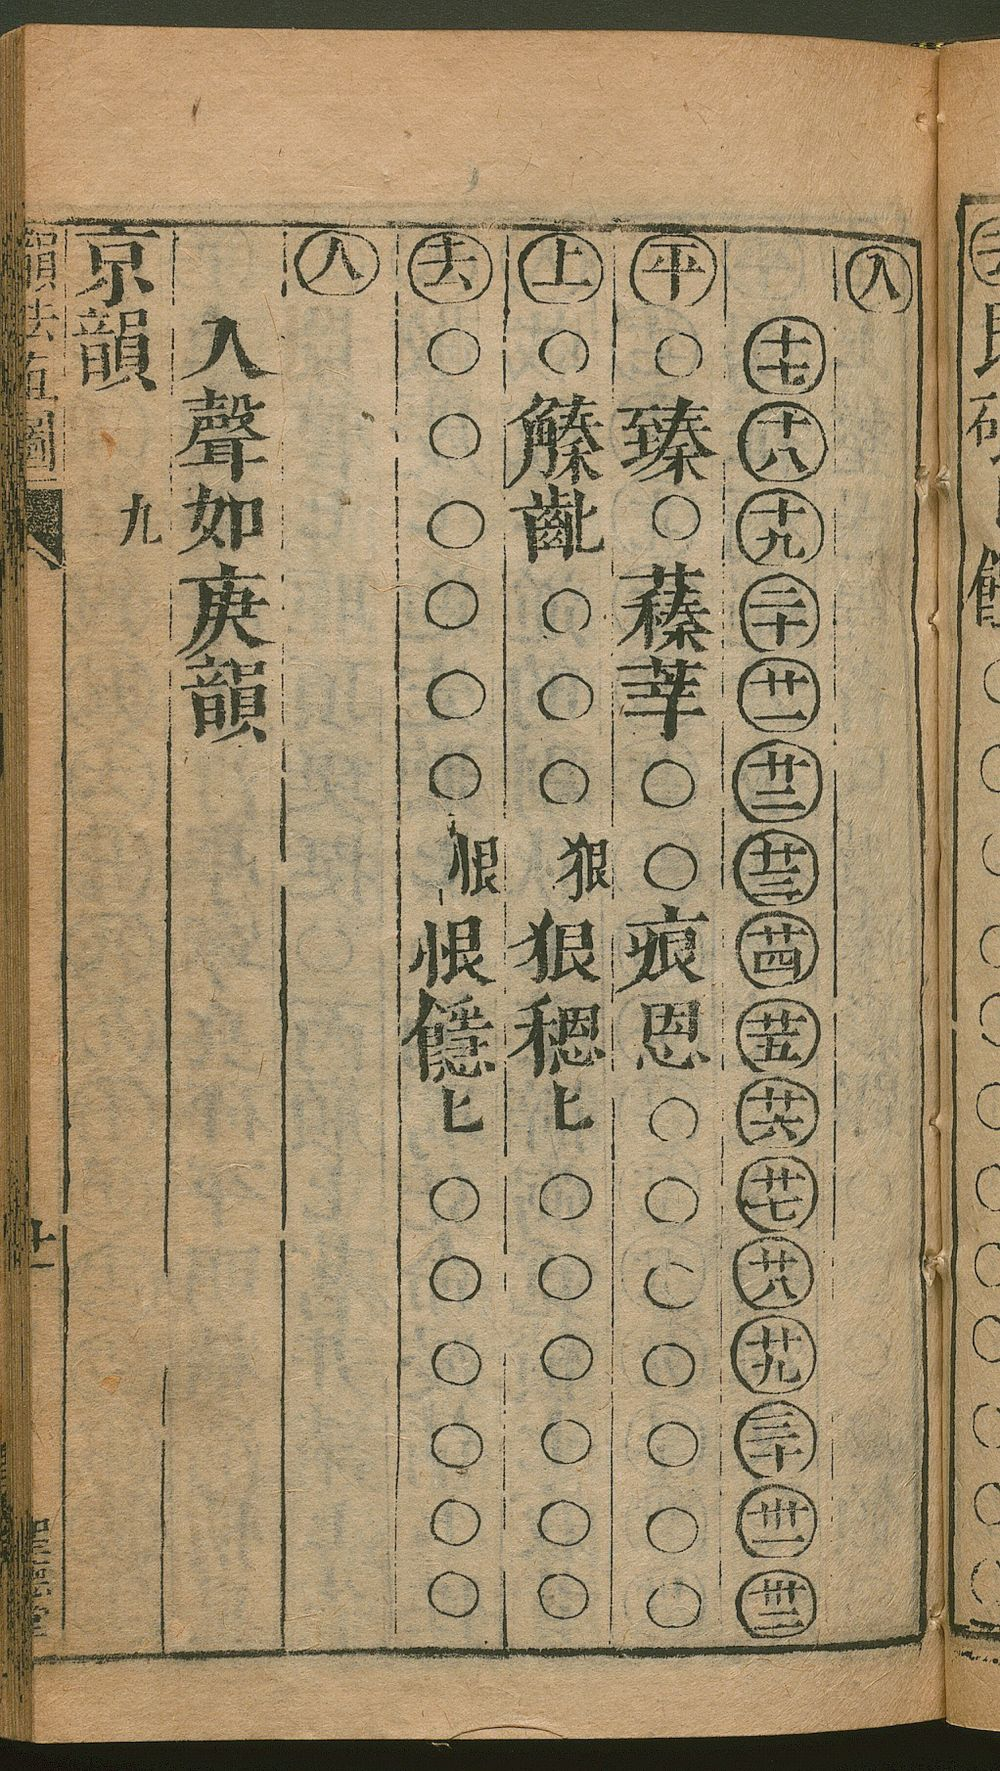 入
十七 十八 十九 二十 廿一 廿二 廿三 廿四 廿五 廿六 廿七 廿八 廿九 三十 卅一 卅二
平 ○ 臻 ○ 蓁 莘 ○ ○ 痕 恩 ○ ○ ○ ○ ○ ○ ○
上 ○ 𧤛 齔 ○ ○ ○ 狠 狠 穩 上 ○ ○ ○ ○ ○ ○
去 ○ ○ ○ ○ ○ ○ 恨 恨 上 ○ ○ ○ ○ ○ ○
入
入聲如庚韻
九
京韻
韻法直圖
十一